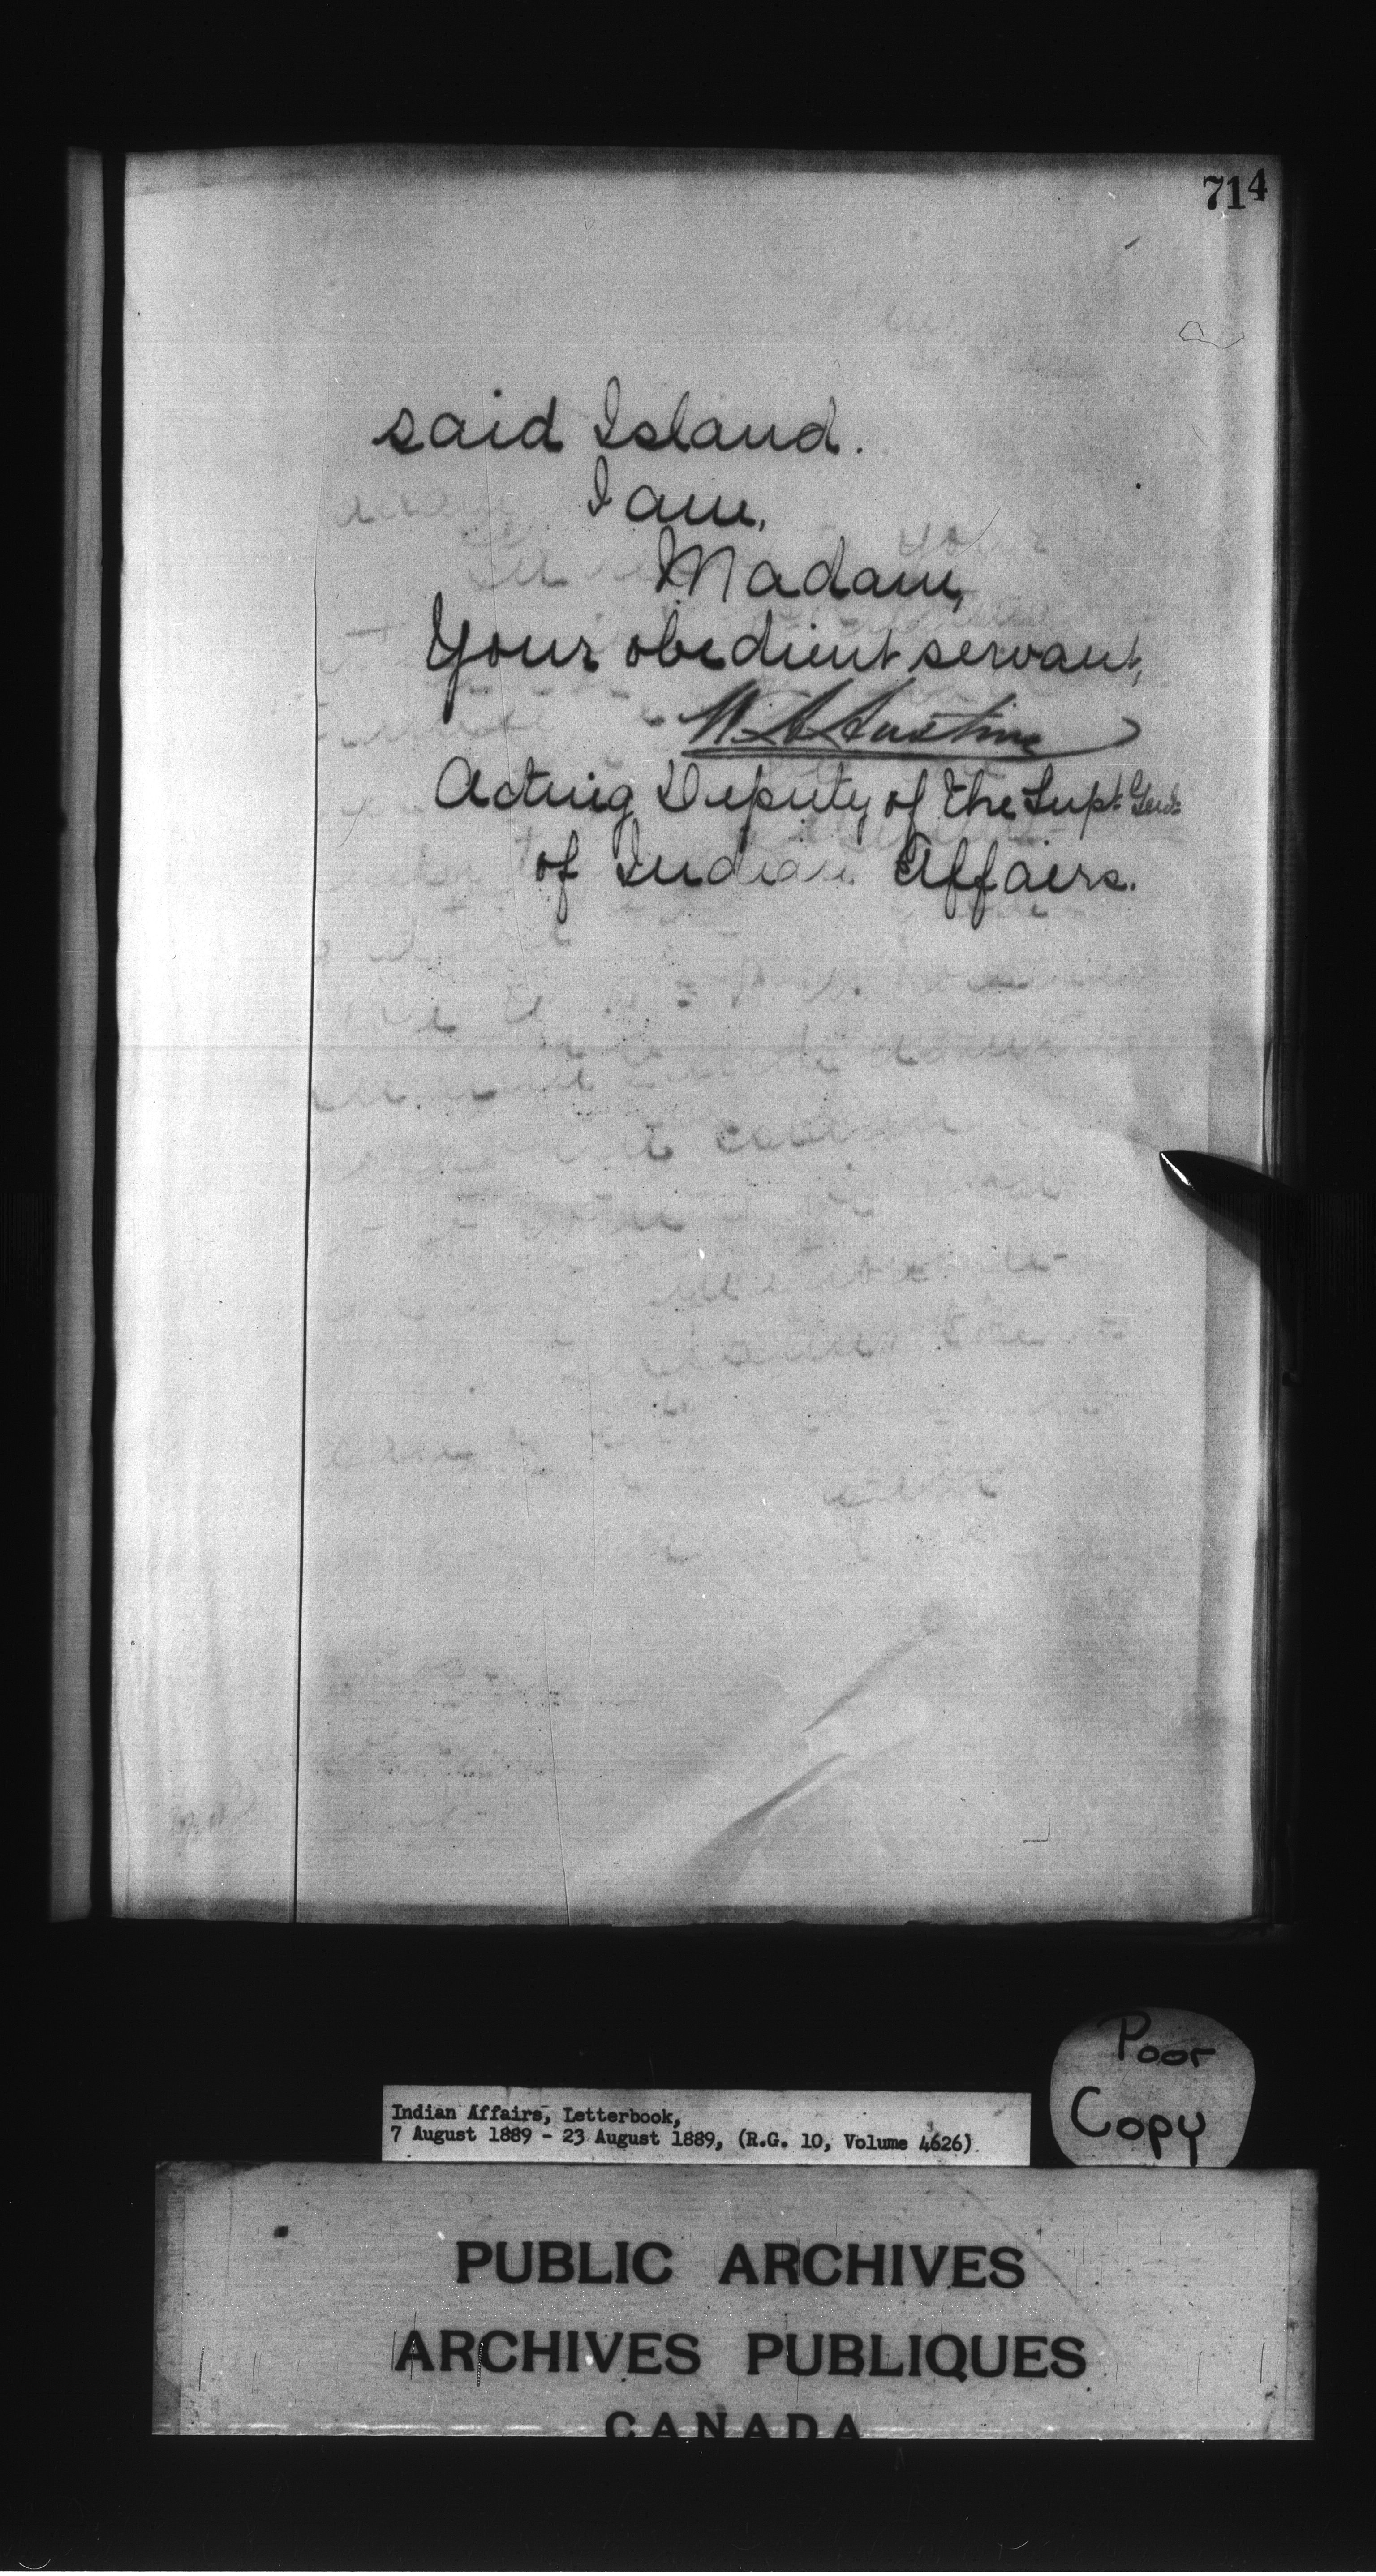 714
said Island.
I am,
Madam,
Your obedient servant,
W. A. Austin
Acting Deputy of the Supt. Genl.
of Indian Affairs.
Poor
Copy
Indian Affairs, Letterbook,
7 August 1889 - 23 August 1889, (R.G. 10, Volume 4626).
PUBLIC ARCHIVES
ARCHIVES PUBLIQUES
CANADA